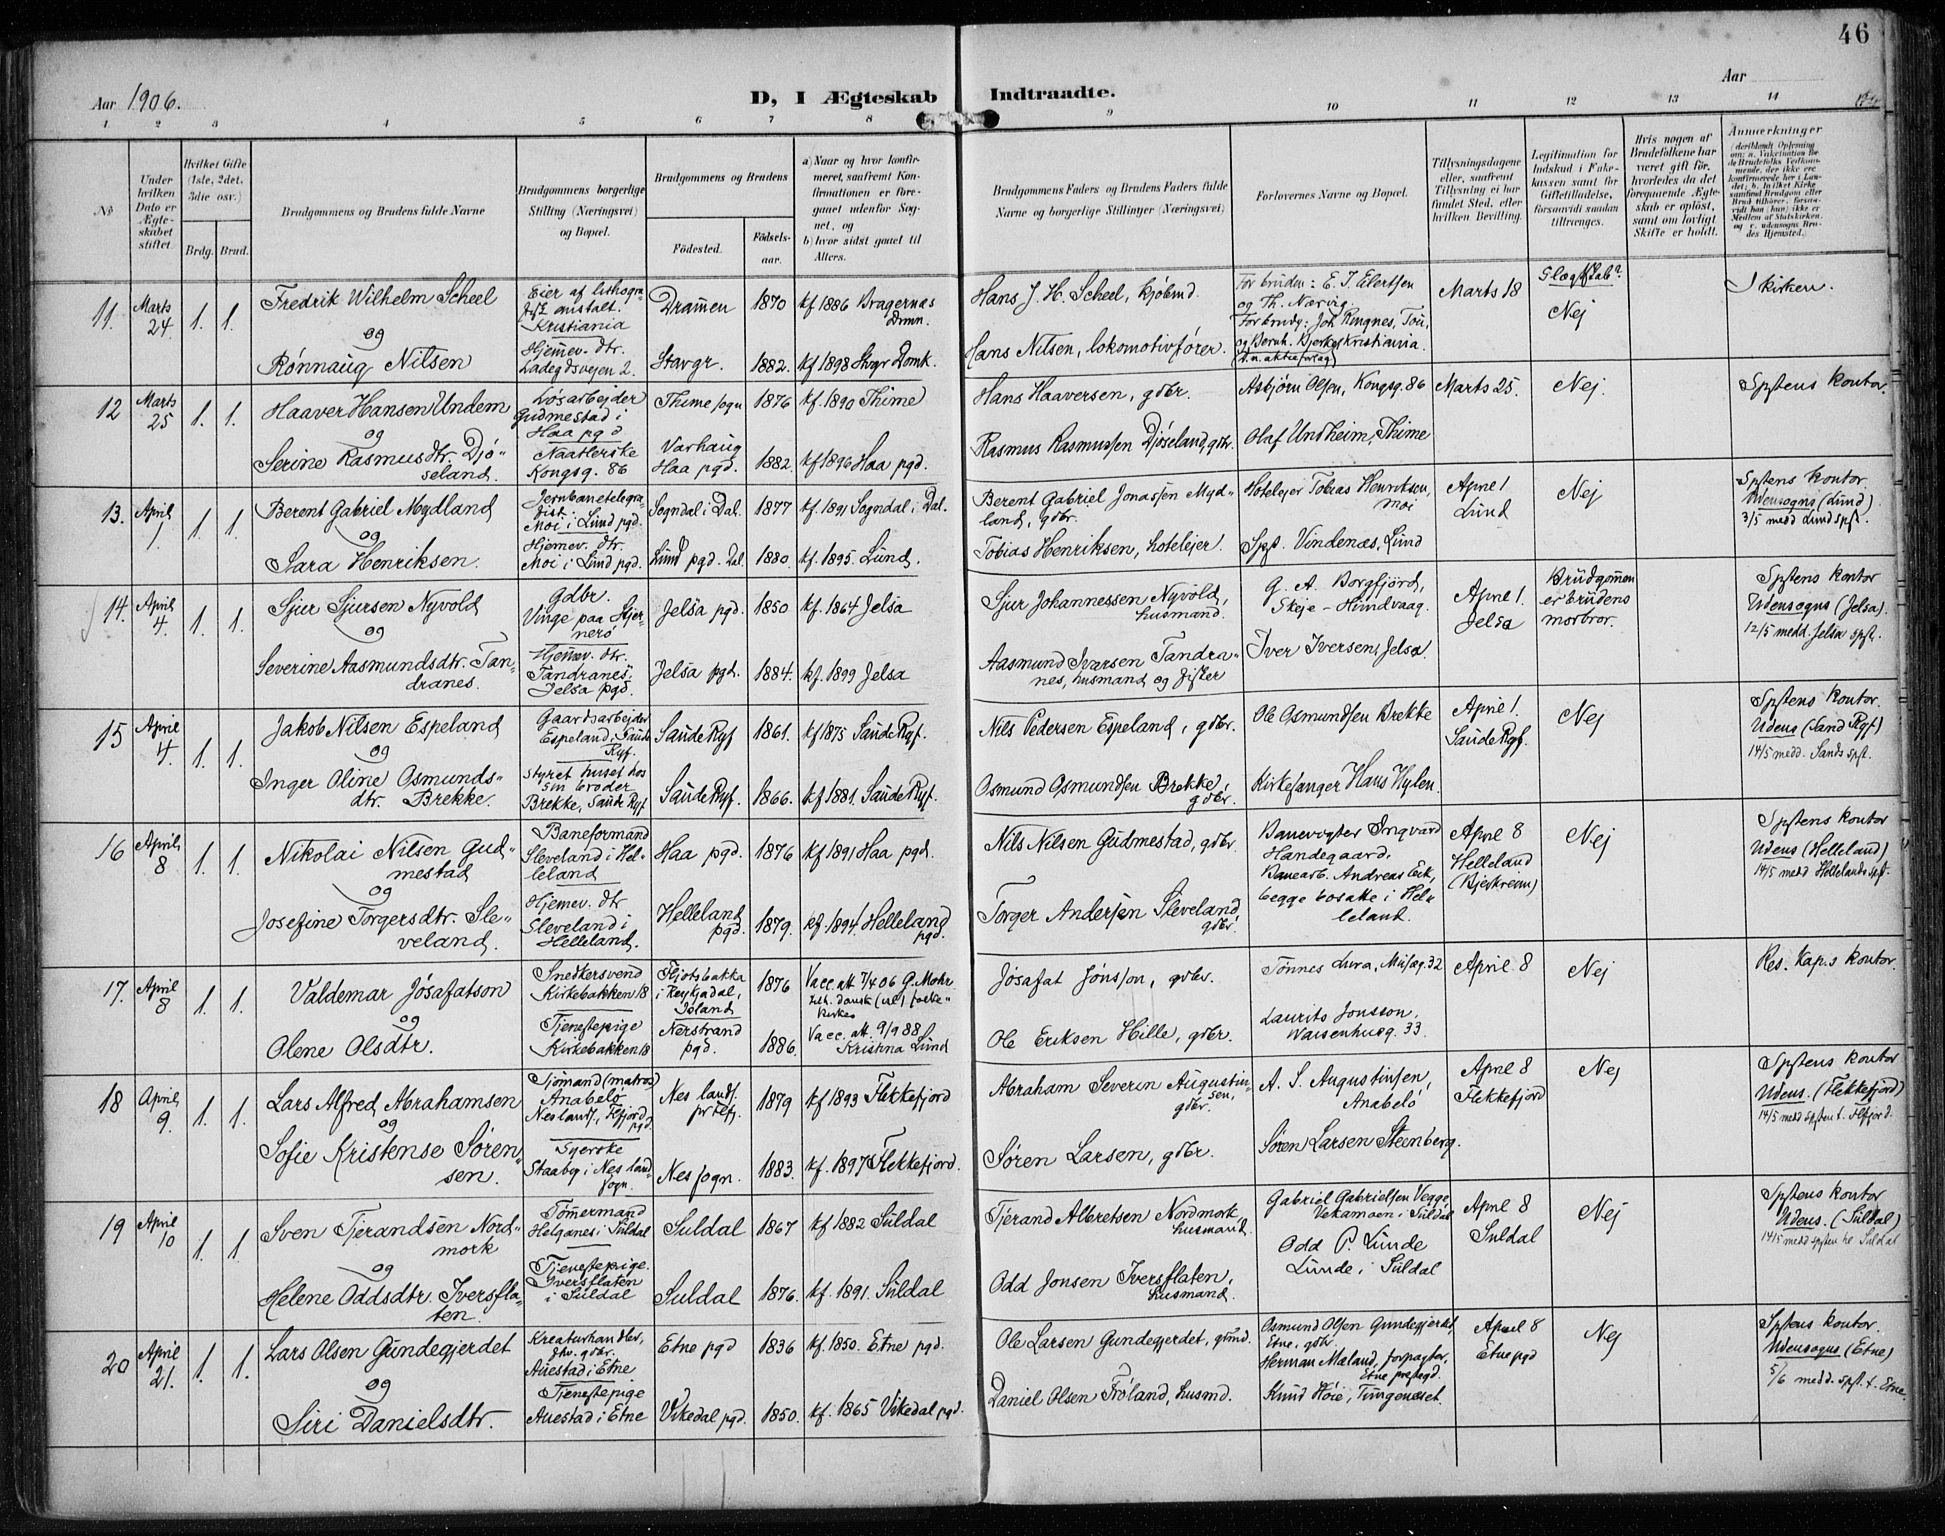 46
Aar 1906.
D, I Ægteskab Indtraadte.
Aar
1 2 3 4 5 6 7 8 9 10 11 12 13 14
No
Under hvilken Dato er Ægteskabet stiftet.
Hvilket Gifte (1ste, 2det, 3die osv.)
Brdg. Brud.
Brudgommens og Brudens fulde Navne
Brudgommens borgerlige Stilling (Næringsvei) og Bopæl.
Brudgommens og Brudens
Fødested.
Fødselsaar.
a) Naar og hvor konfirmeret, saafremt Konfirmationen er foregaaet udenfor Sognet, og
b) hvor sidst gaaet til Alters.
Brudgommens Faders og Brudens Faders fulde Navne og borgerlige Stillinger (Næringsvei)
Forlovernes Navne og Bopæl.
Tillysningsdagene eller, saafremt Tillysning ei har fundet Sted, efter hvilken Bevilling.
Legitimation for Indskud i Enkekassen samt for Giftetilladelse, forsaavidt saadan tiltrænges.
Hvis nogen af Brudefolkene har været gift før, hvorledes da det foregaaende Ægteskab er opløst, samt om lovligt Skifte er holdt.
Anmerkninger
11. Marts 24. 1. 1.
Fredrik Wilhelm Scheel
og
Rønnaug Nilsen
Eier af lithografisk anstalt. Kristiania
Hjemev. dtr. Ladegdsvejen 2.
Drammen 1870 kf 1886 Bragernes Drmn.
Stavgr. 1882. kf 1898 Stvgr Domk.
Hans J. H. Scheel, kjøbmd.
Hans Nilsen, lokomotivfører.
For bruden: E. T. Elertsen og Th. Nærvig
For brudg: Joh Ringnes, Tou, og Bernh. Bjerke, Kristiania.
Marts 18
Slægtskab?
Nej
I kirken.
12 Marts 25 1. 1.
Haaver Hansen Undem
og
Serine Rasmusdtr. Djøseland.
Løsarbejder Gudmestad i Haa pgd
Naatlerske Kongsg. 86
Thime sogn 1876 kf. 1890 Thime
Varhaug Haa pgd. 1882. kf 1896 Haa pgd.
Hans Haaversen, gdbr.
Rasmus Rasmussen Djøseland, gdbr.
Asbjørn Olsen, Kongsg. 86
Olaf Undheim, Thime
Marts 25.
Nej
Spstens kontor.
13. April 1. 1. 1.
Berent Gabriel Mydland
og
Sara Henriksen.
Jernbanetelegrafist. Moi i Lund pgd.
Hjemev. dtr. Moi i Lund pgd.
Sogndal i Dal. 1877 kf. 1891 Sogndal i Dal.
Lund pgd. Dal. 1880. kf. 1895. Lund.
Berent Gabriel Jonassen Mydland, gdbr.
Tobias Henriksen, hotelejer.
Hotelejer Tobias Henriksen, Moi
Spst. Vindenæs, Lund
April 1 Lund
Nej
Spstens kontor.
Udensogns (Lund)
3/5 medd Lund spst.
14. April 4. 1. 1.
Sjur Sjursen Nyvold
og
Severine Aasmundsdtr. Tandranes.
Gdbr. Vinge paa Hjernerø
Hjemev. dtr. Tandranes, Jelsa pgd.
Jelsa pgd. 1850 kf. 1864 Jelsa
Jelsa pgd. 1884. kf. 1899 Jelsa
Sjur Johannessen Nyvold, husmand.
Aasmund Ivarsen Tandranes, husmand og fisker
G. A. Borgfjord, Skeje - Hundvaag.
Iver Iversen, Jelsa.
April 1. Jelsa
Brudgommen er brudens morbror.
Spstens kontor
Udensogns (Jelsa).
12/5 medd. Jelsa spst.
15 April 4. 1. 1.
Jakob Nilsen Espeland
og
Inger Oline Osmundsdtr. Brekke.
Gaardsarbejder Espeland, Saude Ryf.
Styret huset hos sin broder Brekke, Saude Ryf
Saude Ryf 1861. kf 1875 Saude Ryf.
Saude Ryf. 1866. kf 1881. Saude Ryf.
Nils Pedersen Espeland, gdbr.
Osmund Osmundsen Brekke, gdbr.
Ole Osmundsen Brekke
Kirkesanger Hans Hylen.
April 1. Saude Ryf.
Nej
Spstens kontor.
Udens (Sand Ryf)
14/5 medd. Sands spst.
16 April 8 1. 1.
Nikolai Nilsen Gudmestad
og
Josefine Torgersdtr. Sleveland.
Baneformand Sleveland i Helleland
Hjemev. dtr Sleveland i Helleland.
Haa pgd. 1876 kf 1891 Haa pgd.
Helleland pgd. 1879. kf. 1894. Helleland pgd.
Nils Nilsen Gudmestad, gdbr.
Torger Andersen Sleveland, gdbr.
Banevogter Ingvard Handegaard, Banearb. Andreas Eek, begge bosatte i Helleland.
April 8 Helleland (Bjerkreim)
Nej
Spstens kontor
Udens (Helleland)
14/5 medd Hellelands spst.
17. April 8 1. 1.
Valdemar Jósafatson
og
Olene Olsdtr.
Snedkersvend Kirkebakken 18
Tjenestepige Kirkebakken 18
Fljotsbakka i Reykjadal, Island 1876 Vacc. att 7/4 06 G. Mohr
Nerstrand pgd. 1886. Vacc. att. 9/9 88 Kristina Lund
Jósafat Jónsson, gdbr.
Ole Eriksen Hille, gdbr.
Tønnes Lura, Musæg. 32
Laurits Jonsson, Waisenhusg. 33.
April 8
Nej
Res. Kap.s kontor.
18 April 9. 1. 1.
Lars Alfred Abrahamsen
og
Sofie Kristense Sørensen.
Sjømand (matros) Anabelø Nes lands., Ffjord pgd.
Syerske Staabeg i Nes lands sogn.
Nes lands. pr Flfj. 1879 kf 1893 Flekkefjord
Nes sogn. 1883. kf. 1897 Flekkefjord.
Abraham Severin Augustinsen, gdbr.
Søren Larsen, gdbr.
A. S. Augustinsen, Anabelø
Søren Larsen Steenberg.
April 8 Flekkefjord
Nej
Spstens kontor
Udens. (Flekkefjord)
14/5 medd spsten t. Flfjord.
19 April 10 1. 1.
Sven Tjerandsen Nordmork
og
Helene Oddsdtr. Iversflaten.
Tømermand Helganes i Suldal
Tjenestepige. Iversflaten i Suldal
Suldal 1867 kf 1882 Suldal
Suldal 1876. kf. 1891. Suldal
Tjerand Albretsen Nordmork, husmand.
Odd Jonsen Iversflaten, husmand.
Gabriel Gabrielsen Vegge Vekamoen i Suldal
Odd P. Lunde Lunde i Suldal
April 8 Suldal
Nej
Spstens kontor
Udens. (Suldal)
14/5 medd spsten te Suldal
20 April 21. 1. 1.
Lars Olsen Gundegjerdet
og
Siri Danielsdtr.
Kreaturhandler, fhv. gdbr. Auestad i Etne
Tjenestepige Auestad i Etne
Etne pgd 1836 kf. 1850. Etne pgd.
Vikedal pgd. 1850. kf. 1865 Vikedal pgd.
Ole Larsen Gundegjerdet, gdmd.
Daniel Olsen Frøland, husmd.
Osmund Olsen Gundegjerdet, Etne, gdbr.
Herman Maland, forpagter, Etne prestegd.
Knud Høie, Tungenæset.
April 8 Etne pgd
Nej
Spstens kontor.
Udensogns (Etne)
5/6 medd. spst. t. Etne